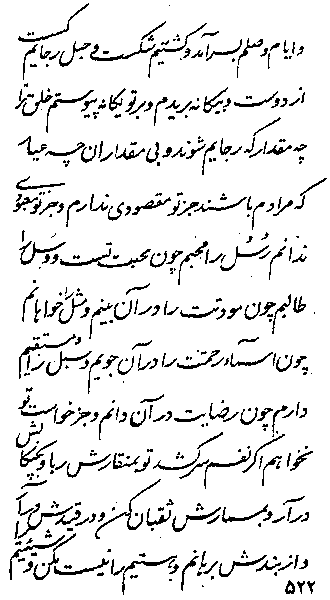 و ایام وصلم بسر آمد و کشتیم شکست و حبل رجایم گسست
از دوست و بیگانه بریدم و بر تو یگانه پیوستم خلق ترا
چه مقدار که رجایم شوند و بی مقداران چه عیار
که مرادم باشند جز تو مقصودی ندارم و جز تو معبودی
ندانم رسل را محبم چون محبت تست و وسل را
طالبم چون مودتت را در آن بینم و مثل را خواهانم
چون اسباب رحمتت را در آن جویم و سبل را مستقیم
دارم چون رضایت در آن دانم و جز خواست تو
نخواهم اگر نفسم سر کشد تو بمنقارش ربا و بچنگالش
در آر و بمسمارش ثقبان کن و در قیدش در آر
و از بندش برهانم و هستیم را نیست مکن و مشیتم را
۵۲۲